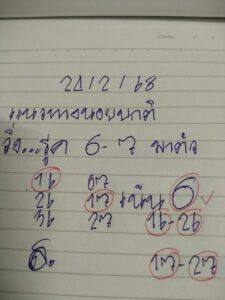 21/2/68
แนวทางหวยนาติ
วิ่ง..รูด 6-7 มาตัว
16 67
26 17 เน้น 6
36 27 16-26
6. 17-27